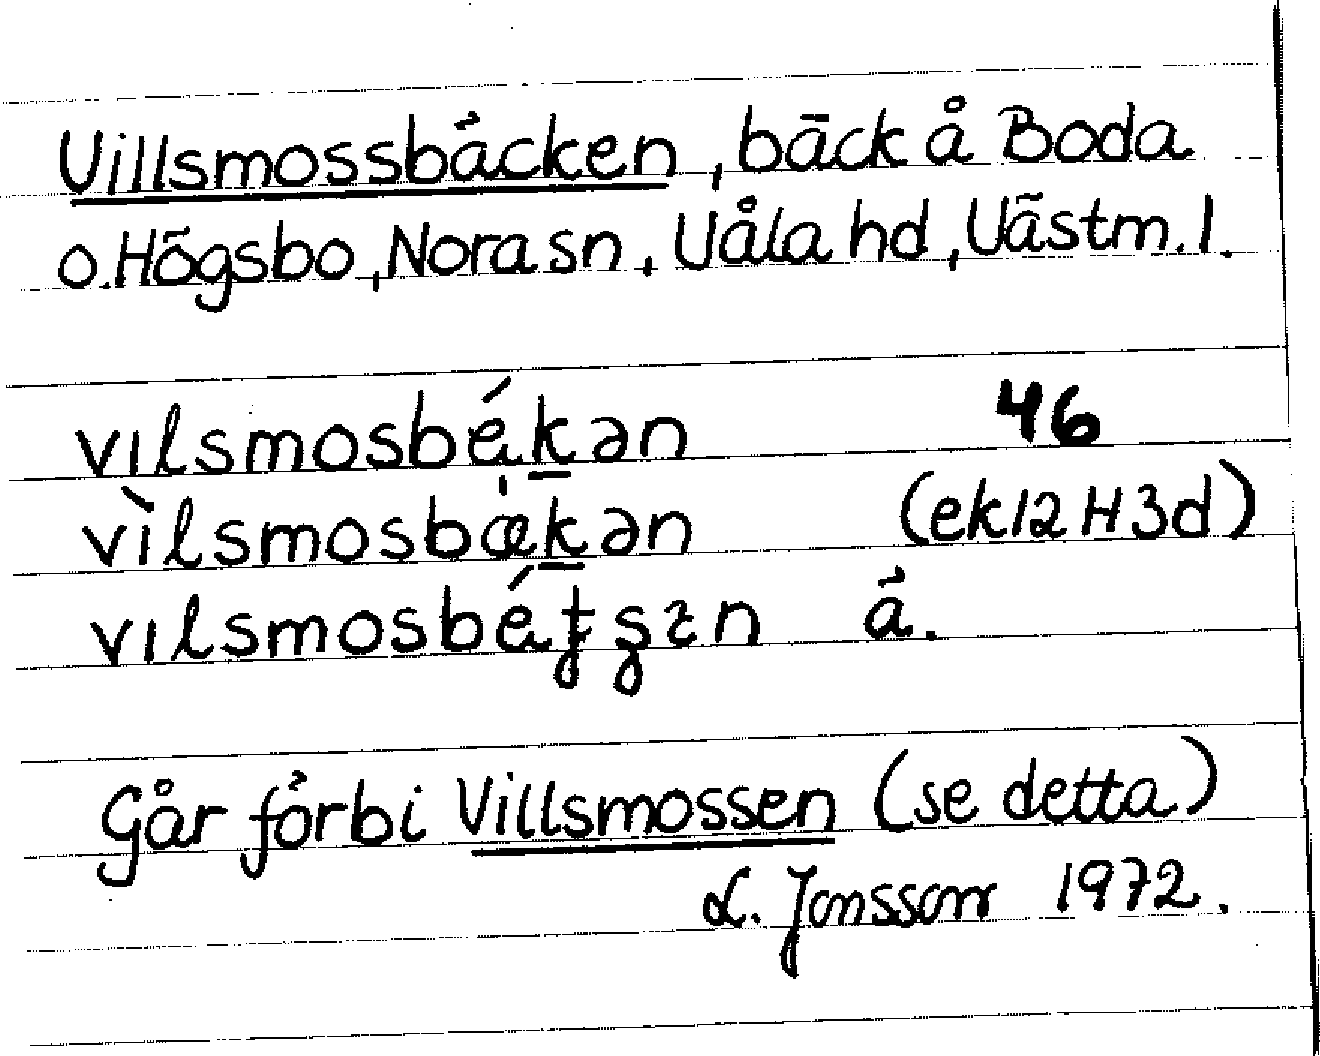 Villsmossbäcken, bäck å Boda
o. Högsbo, Nora sn, Våla hd, Västm. l.
vɪlsmosbékən 46
vɪ̀lsmosbækən (ek 12 H 3d)
ä.
Går förbi Villsmossen (se detta)
L. Jonsson 1972.